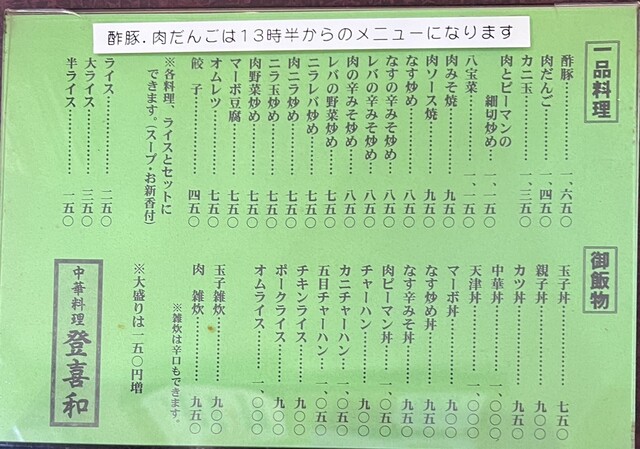 酢豚.肉だんごは13時半からのメニューになります
一品料理
酢豚…………一、六五〇
肉だんご………一、四五〇
カニ玉…………一、三五〇
肉とピーマンの
細切炒め……一、一五〇
八宝菜…………一、一五〇
肉みそ焼…………九五〇
肉ソース焼………九五〇
なす炒め…………八五〇
なすの辛みそ炒め……八五〇
レバの辛みそ炒め……八五〇
肉の辛みそ炒め………八五〇
レバの野菜炒め………七五〇
ニラレバ炒め…………七五〇
肉ニラ炒め…………七五〇
ニラ玉炒め…………七五〇
肉野菜炒め…………七五〇
マーボ豆腐…………七五〇
オムレツ…………七五〇
餃子…………四五〇
※各料理、ライスとセットに
できます。(スープ・お新香付)
ライス…………二五〇
大ライス…………三五〇
半ライス…………一五〇
御飯物
玉子丼…………七五〇
親子丼…………九〇〇
カツ丼…………九五〇
中華丼…………一、〇〇〇
天津丼…………一、〇〇〇
マーボ丼…………九五〇
なす炒め丼…………九五〇
なす辛みそ丼…………九五〇
肉ピーマン丼……一、〇五〇
チャーハン…………九〇〇
カニチャーハン……一、〇五〇
五目チャーハン……一、〇五〇
チキンライス…………九〇〇
ポークライス…………九〇〇
オムライス………一、〇〇〇
玉子雑炊…………九〇〇
肉 雑炊…………九五〇
※雑炊は辛口もできます。
※大盛りは一五〇円増
中華料理 登喜和